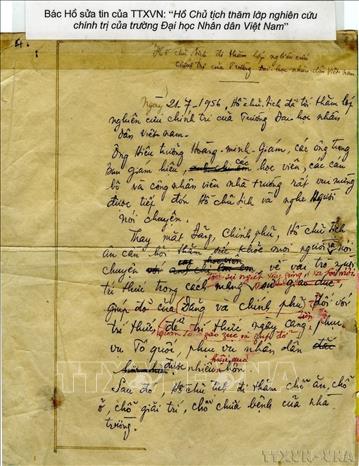 Bác Hồ sửa tin của TTXVN: "Hồ Chủ tịch thăm lớp nghiên cứu
chính trị của trường Đại học Nhân dân Việt Nam"
Hồ Chủ tịch đi thăm lớp nghiên cứu
chính trị của Trường Đại học nhân dân Việt Nam
Ngày 21-7-1956, Hồ chủ tịch đã tới thăm lớp
nghiên cứu chính trị của Trường Đại học nhân
dân Việt nam.
Ông Hiệu trưởng Hoàng-minh-Giám, các ông trong
Ban giám hiệu, các học viên, các cán
bộ và công nhân viên nhà trường rất vui mừng
được tiếp đón Hồ Chủ tịch và nghe Người
nói chuyện.
Thay mặt Đảng, Chính phủ, Hồ Chủ tịch
ân cần hỏi thăm sức khỏe mọi người và nói
chuyện về vai trò người
trí thức trong cách mạng
giúp đỡ của Đảng và chính phủ đối với
trí thức, để trí thức ngày càng phục
vụ Tổ quốc, phục vụ nhân dân
được nhiều hơn.
Sau đó, Hồ chủ tịch đi thăm chỗ ăn, chỗ
ở, chỗ giải trí, chỗ chữa bệnh của nhà
trường.
TTXVN-VNA
TTXVN-VNA